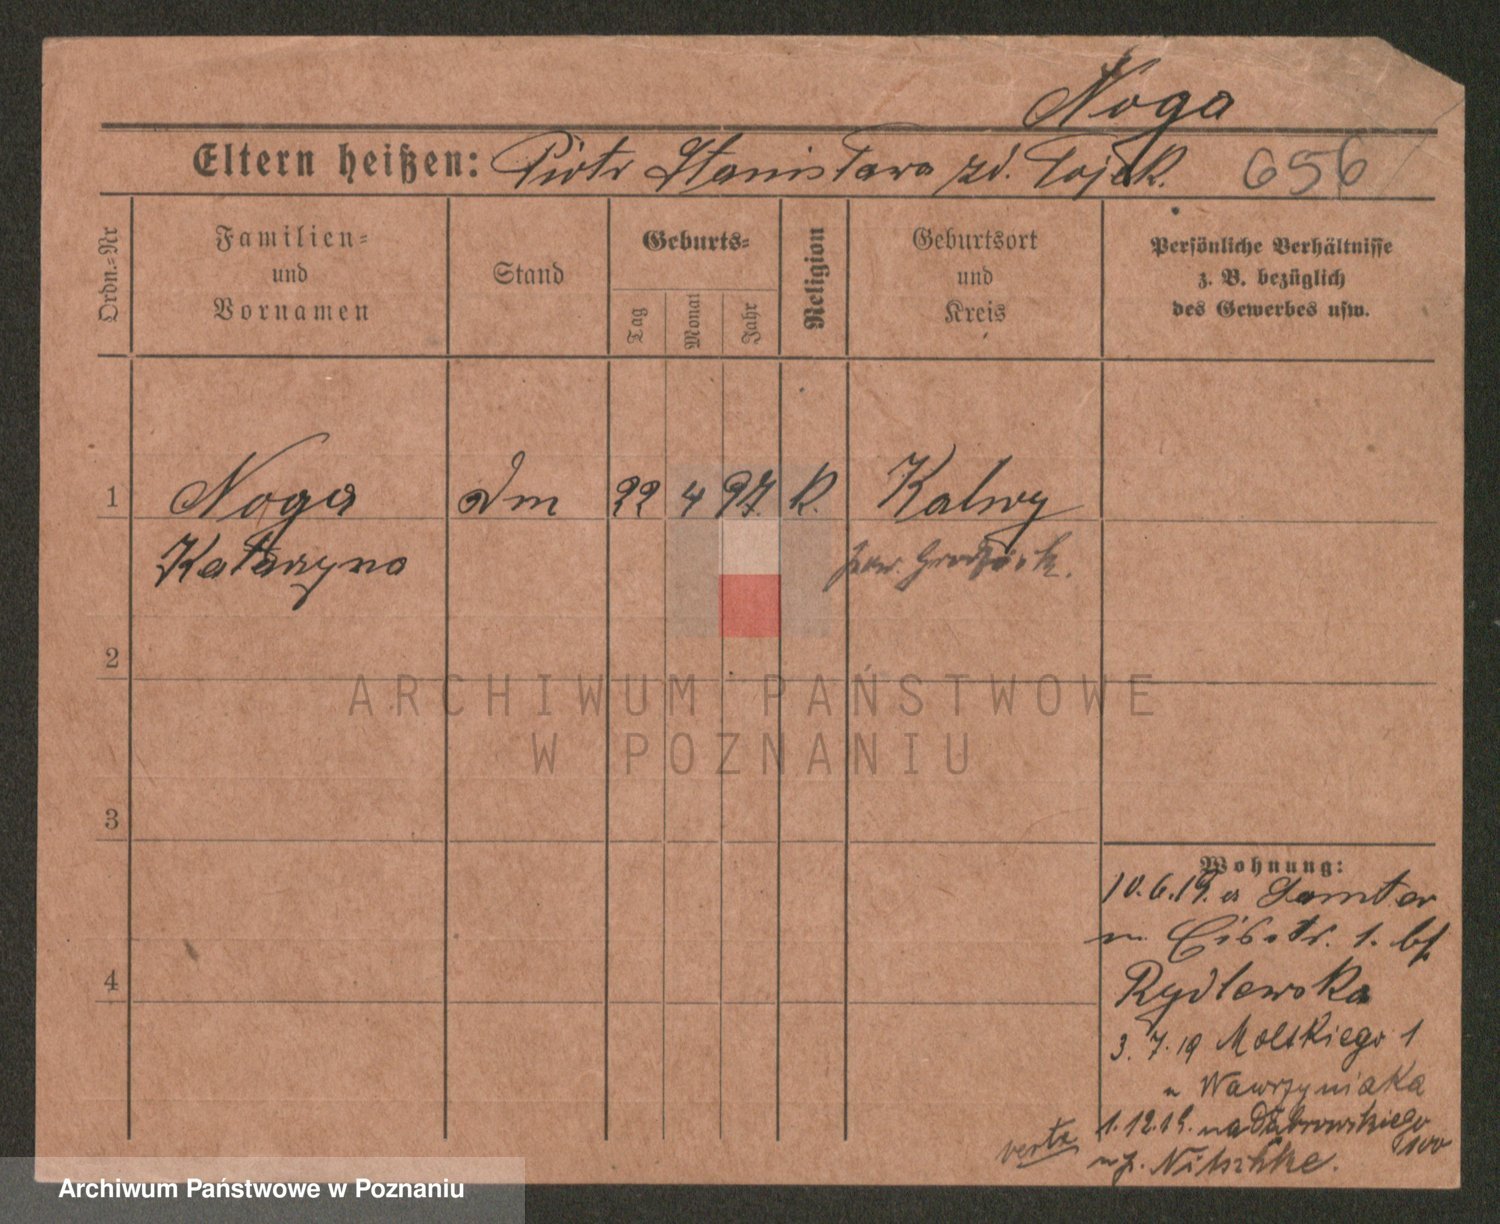 Noga
Eltern heißen: Piotr Stanisława zd. Tojek. 656
Ordn.-Nr
Familien-
und
Vornamen
Stand
Geburts-
Tag
Monat
Jahr
Religion
Geburtsort
und
Kreis
Persönliche Verhältnisse
z. B. bezüglich
des Gewerbes usw.
1 Noga Dm 22 4 97. k. Kalwy
Katarzyna pow. Grodzisk.
2
3
4
Wohnung:
10.6.19. a Samter
n. Eibstr. 1. bf
Rydlewska
3. 7. 19 Moltkiego 1
u Wawrzyniaka
1.12.19. na Dąbrowskiego
100
u p. Nitschke.
verte
ARCHIWUM PAŃSTWOWE
W POZNANIU
Archiwum Państwowe w Poznaniu